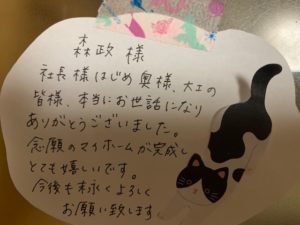 森政様
社長様はじめ奥様、大工の
皆様、本当にお世話になり
ありがとうございました。
念願のマイホームが完成し
とても嬉しいです。
今後も末永くよろしく
お願い致します